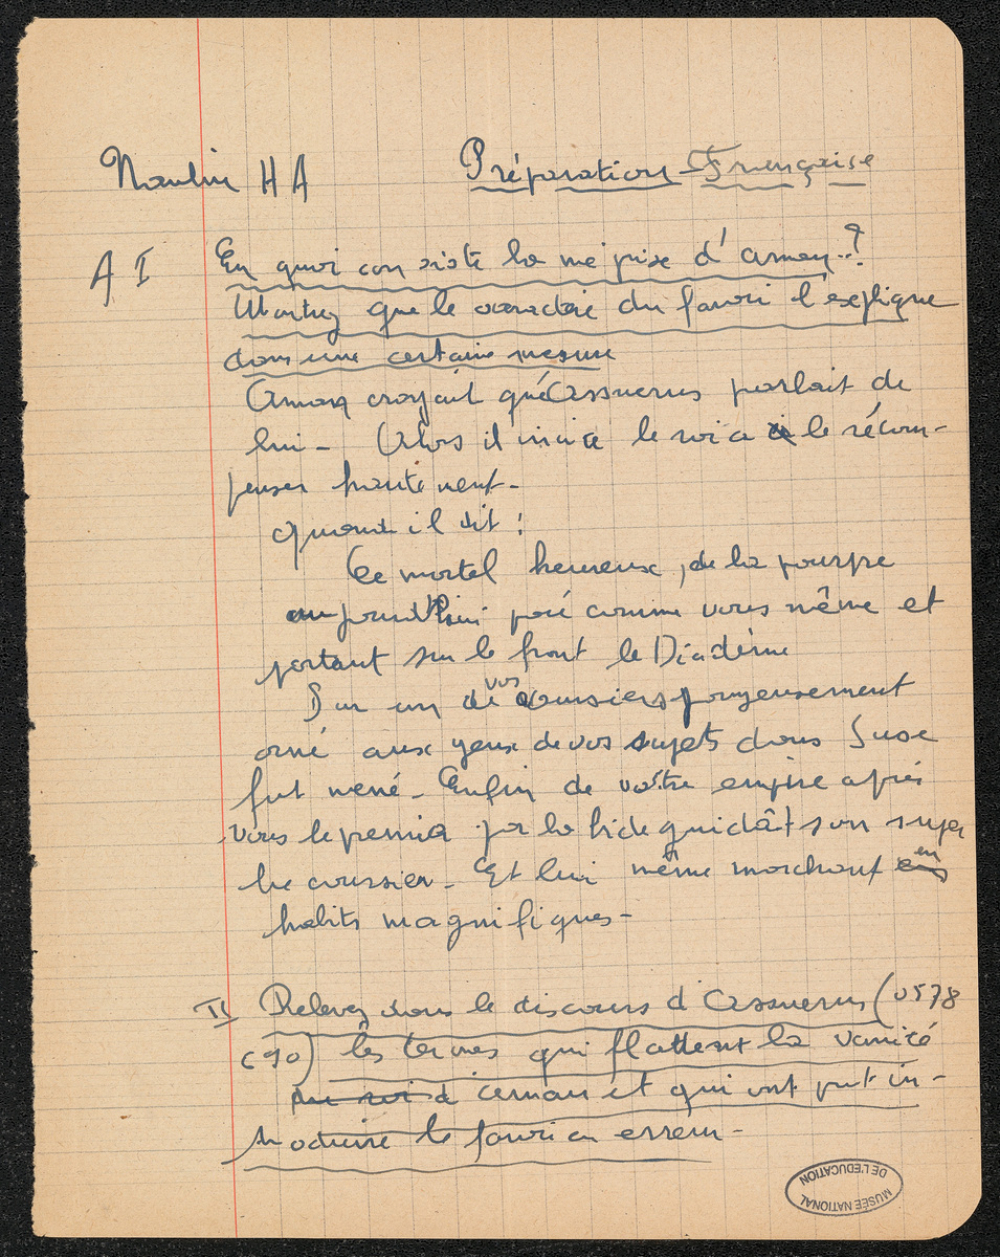 Moulin HA Préparation Française
A I En quoi consiste la méprise d'aman..?
Montrez que le caractère du favori l'explique
dans une certaine mesure
Aman croyait qu'Assuerus parlait de
lui - Alors il incite le roi a le récom-
penser hautement -
quand il dit :
Ce mortel heureux, de la pourpre
aujourd'hui paré comme vous même et
portant sur le front le Diadème
Sur un de vos coursiers pompeusement
orné aux yeux de vos sujets dans Suse
fut mené - Enfin de votre empire après
vous le premia par la bride guidât son super
be coursier - Et lui même marchant en
habits magnifiques -
II Relevez dans le discours d'Assuerus (v578
590) les termes qui flattent la vanité
du roi d'aman et qui ont put in-
troduire le favori en erreur -
MUSÉE NATIONAL
DE L'ÉDUCATION